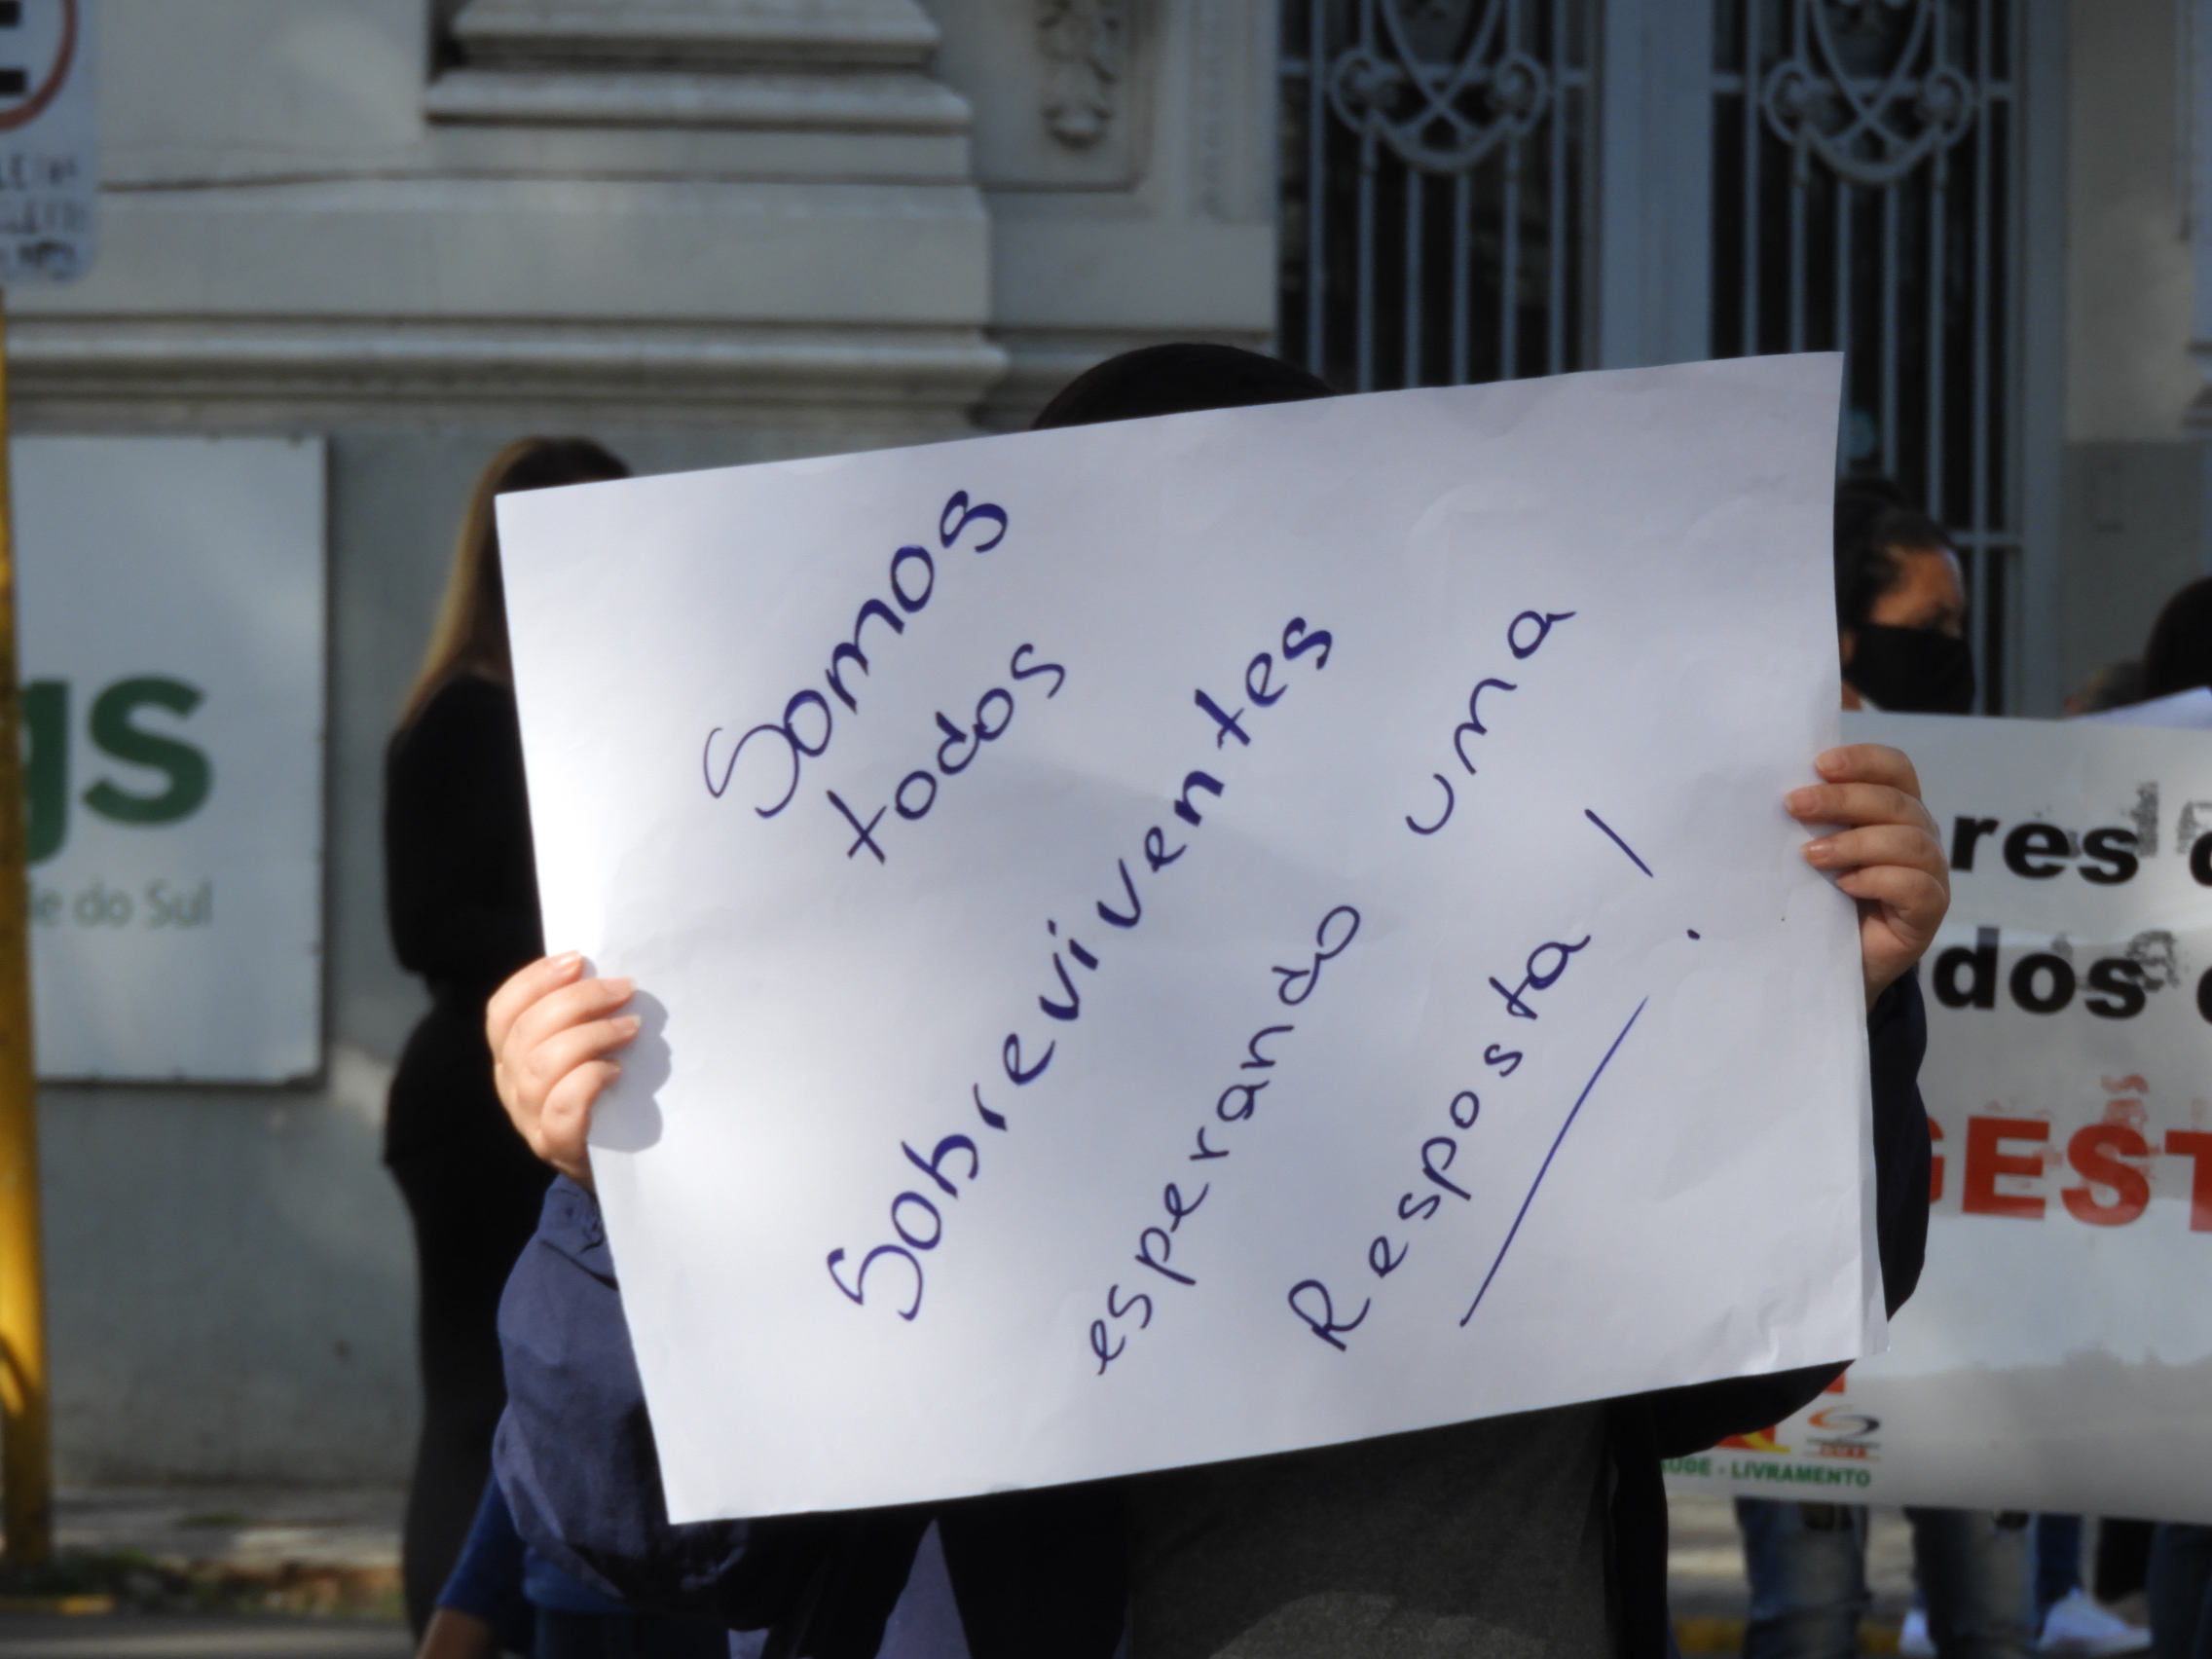 Somos
todos
Sobreviventes
esperando uma
Resposta!
gs
do Sul
res
dos
GEST
LIVRAMENTO